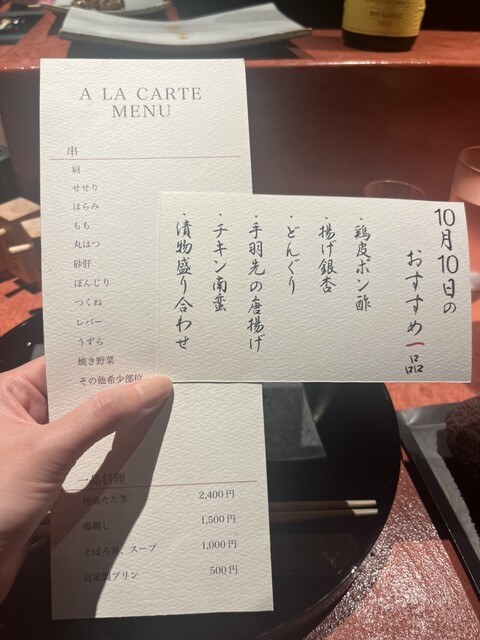 A LA CARTE
MENU
串
肩
せせり
はらみ
もも
丸はつ
砂肝
ぼんじり
つくね
レバー
うずら
焼き野菜
その他希少部位
一品料理
たたき 2,400円
刺し 1,500円
そぼろ丼、スープ 1,000円
自家製プリン 500円
10月10日の
おすすめ一品
・鶏皮ポン酢
・揚げ銀杏
・どんぐり
・手羽先の唐揚げ
・チキン南蛮
・漬物盛り合わせ
RIESLING